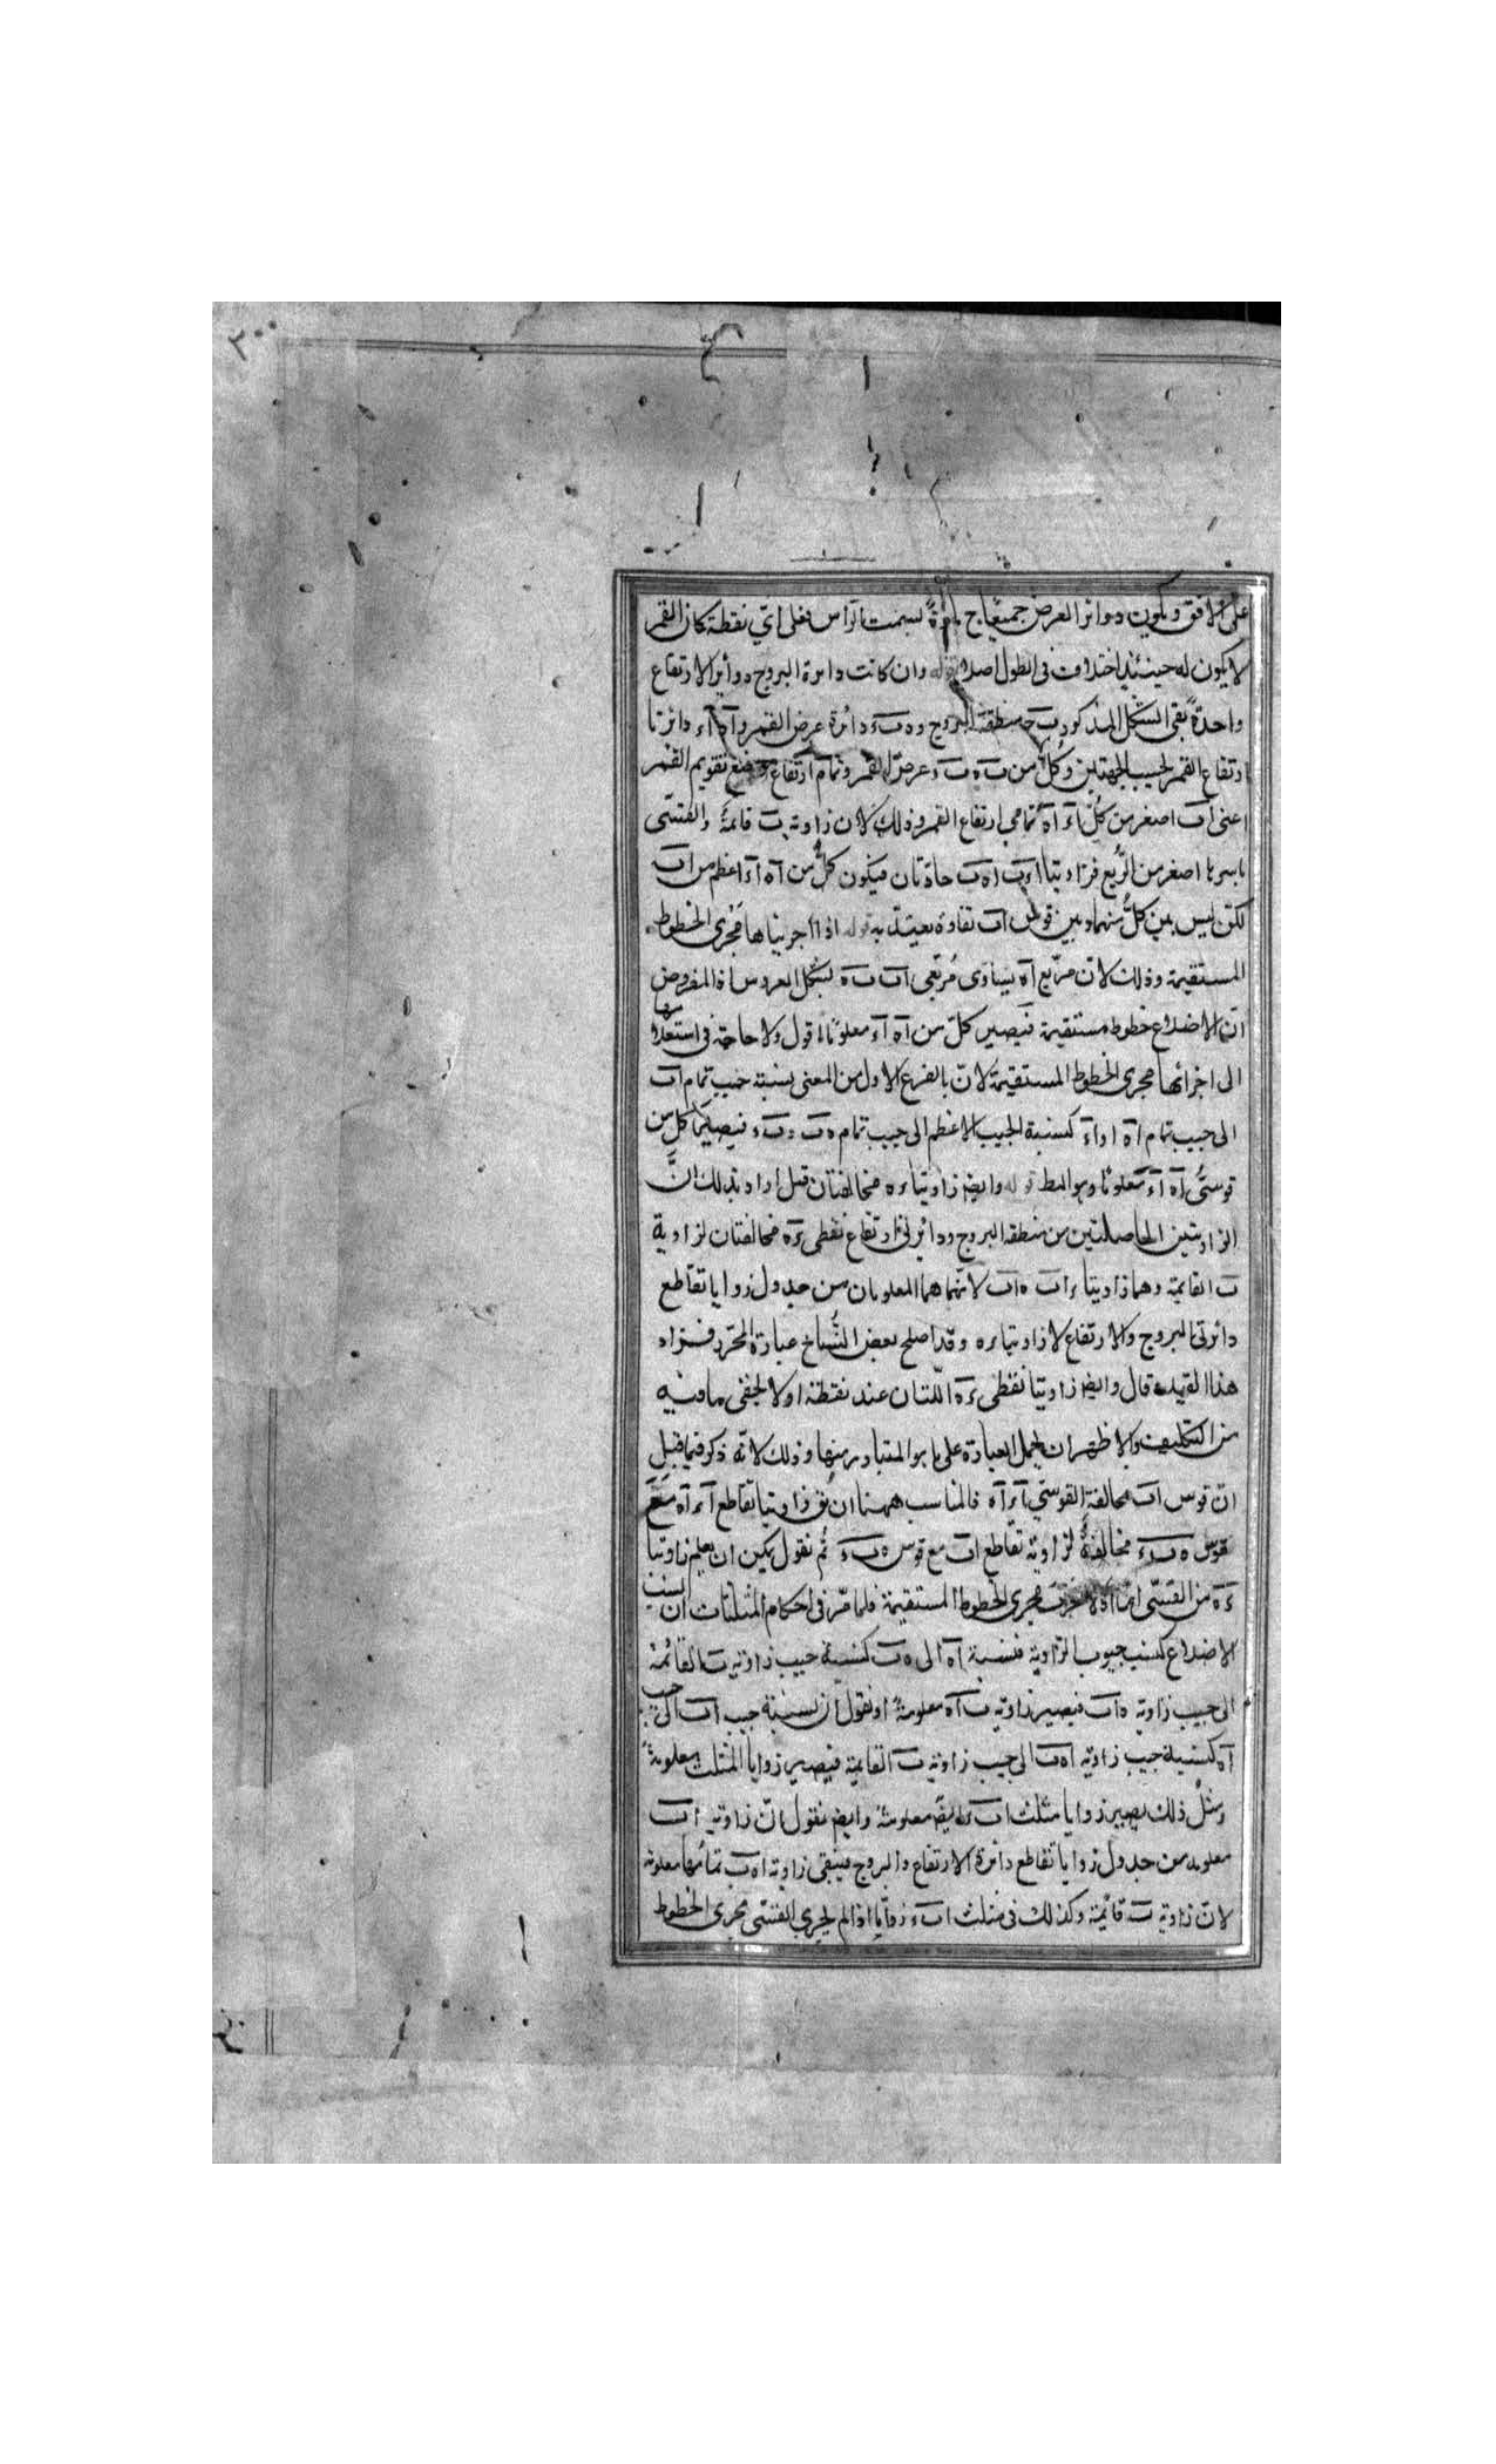 على الافق ويكون دوائر العرض جميعا ح مارة بسمت الراس فعلى اي نقطة كان القمر
لا يكون له حينئذ اختلاف في الطول اصلا قوله وان كانت دائرة البروج ودائرتا الارتفاع
واحدة بقى الشكل المذكور ب ح منطقة البروج و ه ب ء دائرة عرض القمر و ا ه ا ء دائرتا
ارتفاع القمر بحسب الجهتين وكل من ب ه ب ء عرض القمر وتمام ارتفاع موضع تقويم القمر
اعنى اب اصغر من كل ا ء ا ه تمامي ارتفاع القمر وذلك لان زاوية ب قائمة والقسي
باسرها اصغر من الربع فزاويتا ا ء ب ا ه ب حادتان فيكون كل من ا ه ا ء اعظم من اب
لكن ليس بين كل منهما وبين قوس اب تفاوة يعتد به قوله اذا اجريناها مجرى الخطوط
المستقيمة وذلك لان مربع ا ه يساوى مربعى اب ب ه بشكل العروس اذ المفروض
ان الاضلاع خطوط مستقيمة فيصير كل من ا ه ا ء معلوما اقول ولا حاجة في استعلامها
الى اجرائها مجرى الخطوط المستقيمة لان بالفرع الاول من المغنى نسبة جيب تمام اب
الى جيب تمام ا ه او ا ء كنسبة الجيب الاعظم الى جيب تمام ه ب و ب ء فيصير كل من
قوسى ا ه ا ء معلوما وهو المط قوله وايضا زاويتا ء ه مخالفتان قيل اراد بذلك ان
الزاويتين الحاصلتين من منطقة البروج ودائرتى ارتفاع نقطى ء ه مخالفتان لزاوية
ب القائمة وهما زاويتا ء اب ه اب لانهما هما المعلومان من جدول زوايا تقاطع
دائرتى البروج والارتفاع لا زاويتا ء ه وقد اصلح بعض النساخ عبارة المحرر فزاد
هذا القيد قال وايضا زاويتا نقطى ء ه اللتان عند نقطة ا ولا يخفى ما فيه
من التكلف والاظهر ان يحمل العبارة على ما هو المتبادر منها وذلك لانه ذكر فيما قبل
ان قوس اب مخالفة لقوسى ا ء ا ه فالمناسب ههنا ان يق زاويتا تقاطع ا ء ا ه مع
قوس ه ب ء مخالفة لزاوية تقاطع اب مع قوس ه ب ء ثم نقول يمكن ان يعلم زاويتا
ء ه من القسى اما اذا اجريت مجرى الخطوط المستقيمة فلما مر في احكام المثلثات ان نسب
الاضلاع كنسب جيوب الزاوية فنسبة ا ه الى ه ب كنسبة جيب زاوية ب القائمة
الى جيب زاوية ه اب فيصير زاوية ب ا ه معلومة او نقول ان نسبة جيب اب الى جيب
ا ه كنسبة جيب زاوية ا ه ب الى جيب زاوية ب القائمة فيصير زوايا المثلث معلومة
ومثل ذلك يصير زوايا مثلث اب ء ايضا معلومة وايضا نقول ان زاوية ا ب
معلومه من جدول زوايا تقاطع دائرة الارتفاع والبروج فيبقى زاوية ا ه ب تمامها معلومة
لان زاوية ب قائمة وكذلك في مثلث اب ء واما اذا لم يجرى القسى مجرى الخطوط